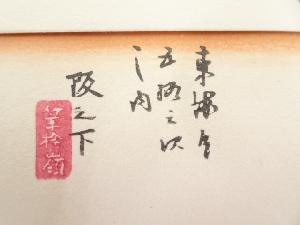 東海道
五拾三次
之内
阪之下
筆捨嶺